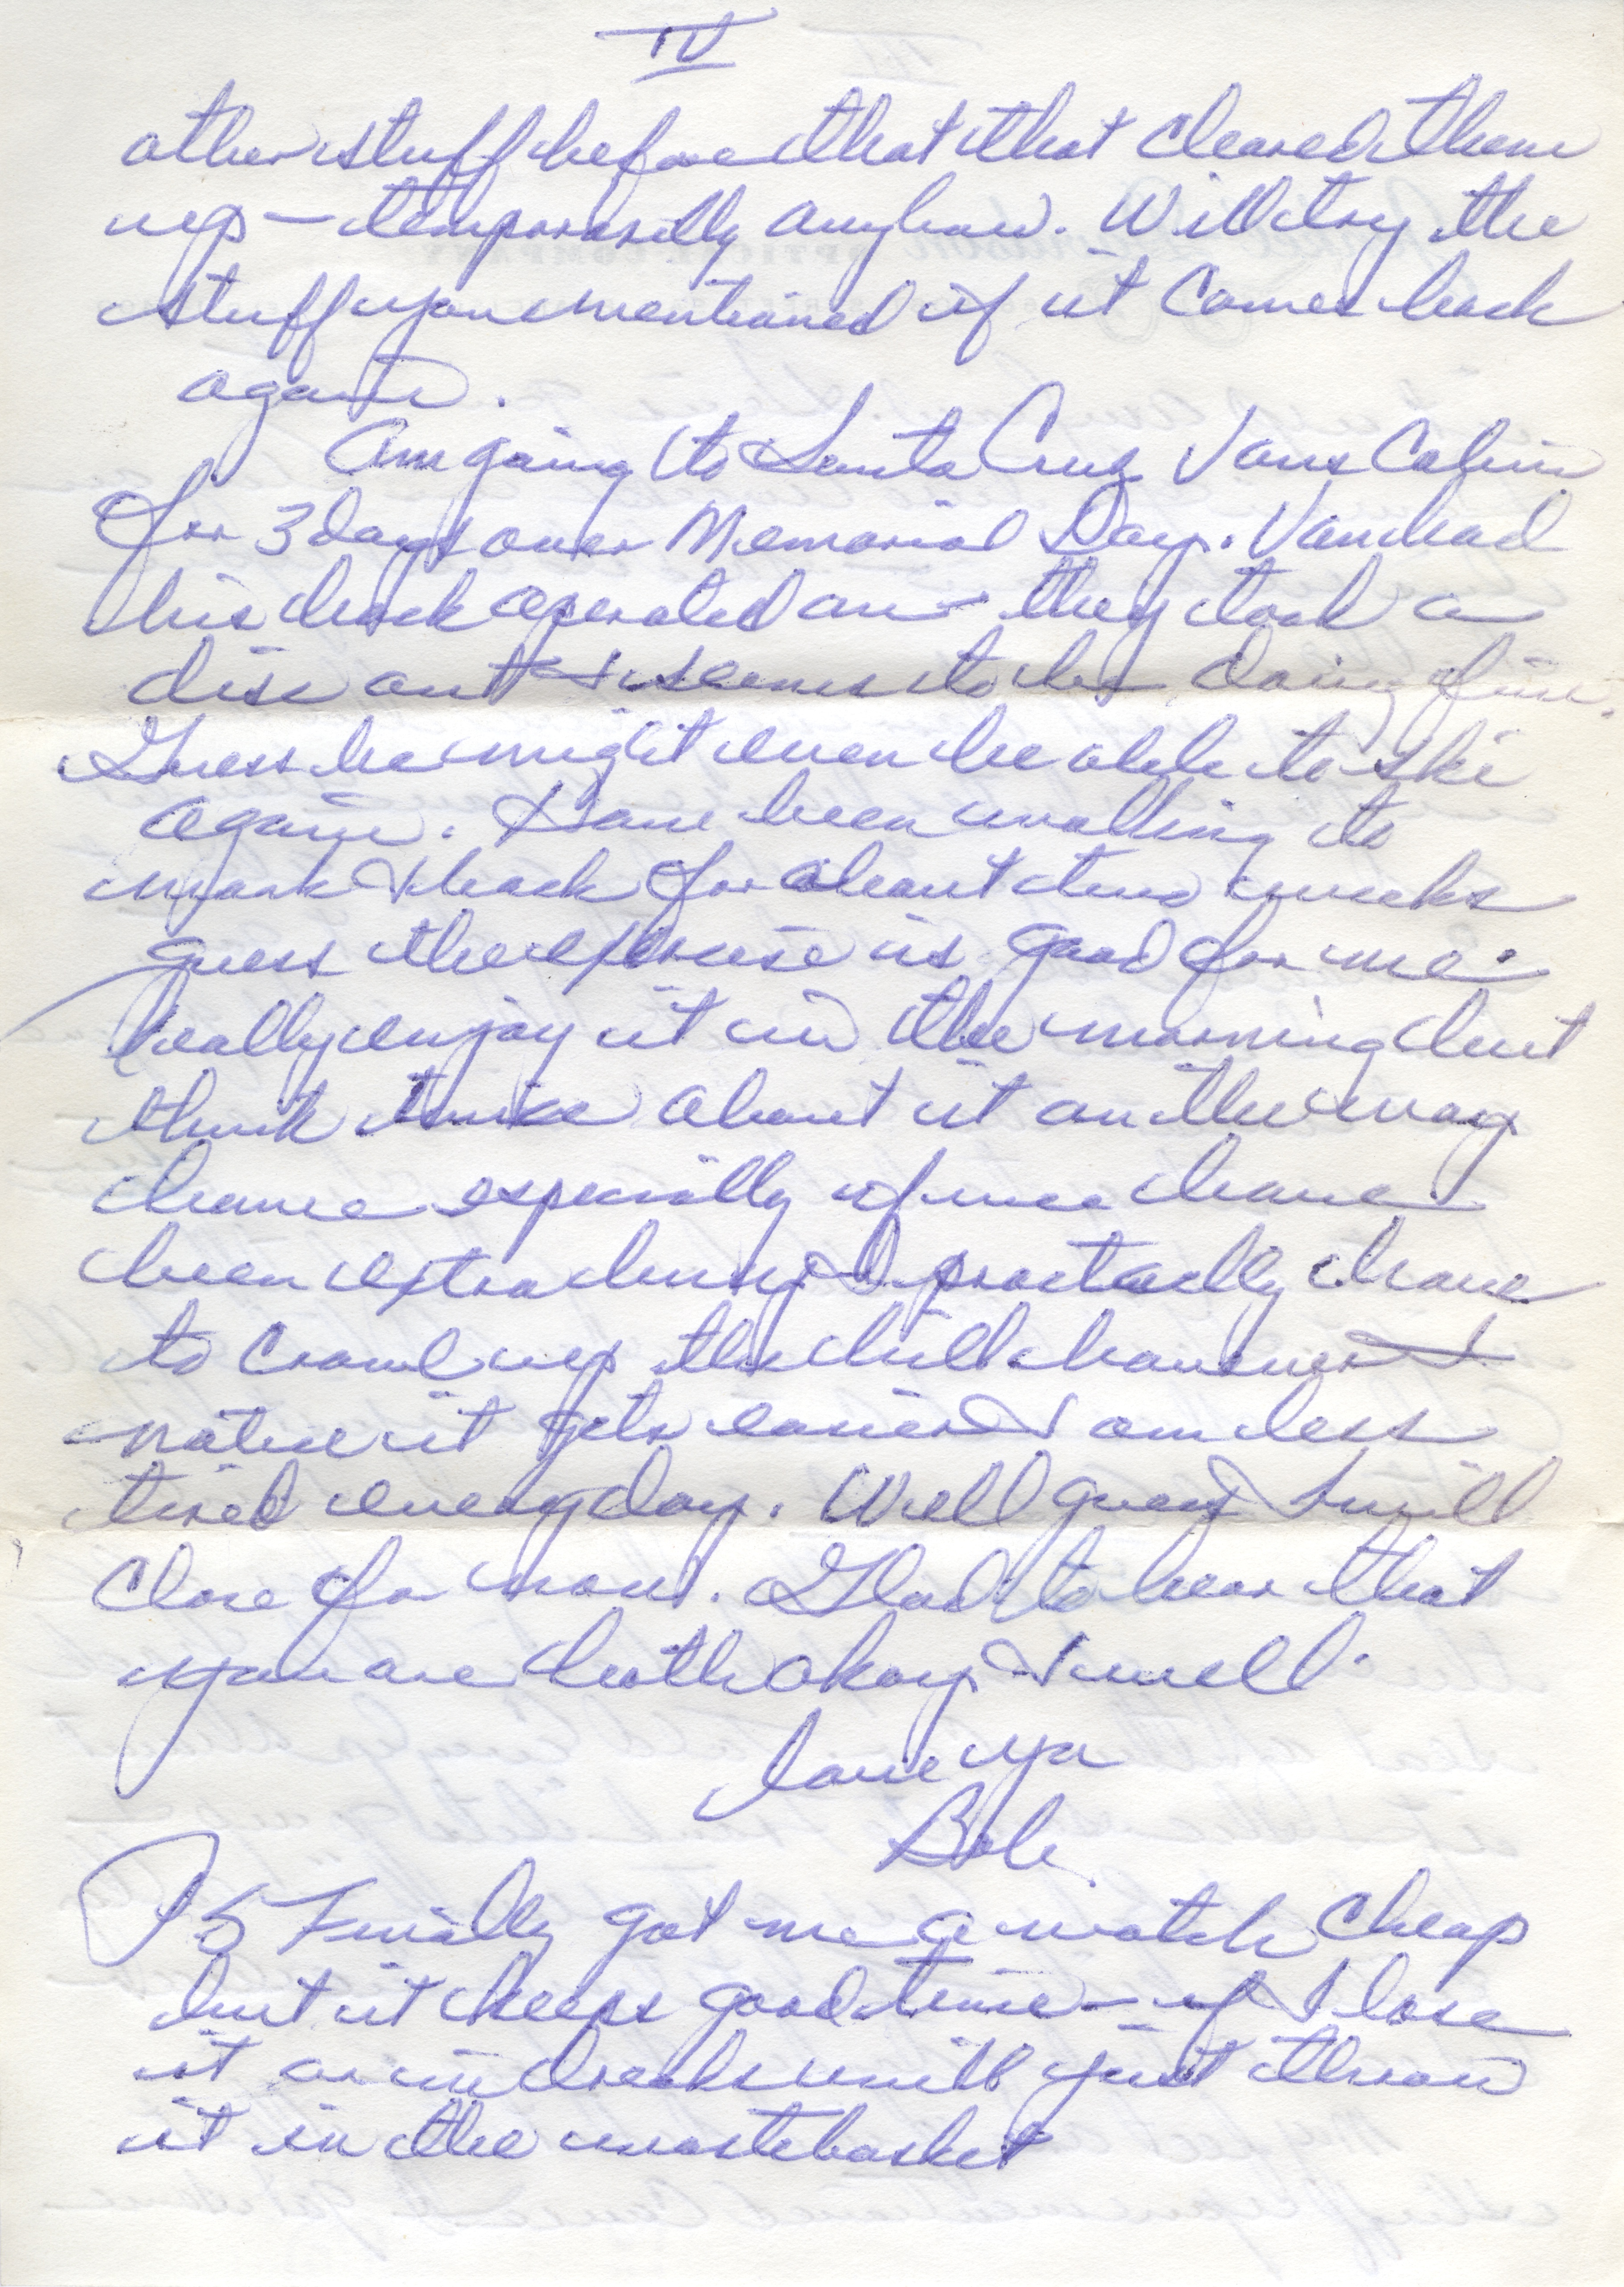 IV
other stuff before that that cleared them
up — temporarily anyhow. Will try the
stuff you mentioned if it comes back
again.
Am going to Santa Cruz Vans Cabin
for 3 days over Memorial Day. Van had
his back operated on - they took a
disc out & seems to be doing fine.
Guess he might even be able to ski
again. Have been walking to
work & back for about two weeks
guess the exercise is good for me.
Really enjoy it in the morning but
think twice about it on the way
home especially if we have
been extra busy I practically have
to crawl up the hill however I
notice it gets easier & am less
tired everyday. Well guess I will
close for now. Glad to hear that
you are both okay & well.
Love ya
Bob.
PS Finally got me a watch cheap
but it keeps good time - if I lose
it or it breaks will just throw
it in the wastebasket